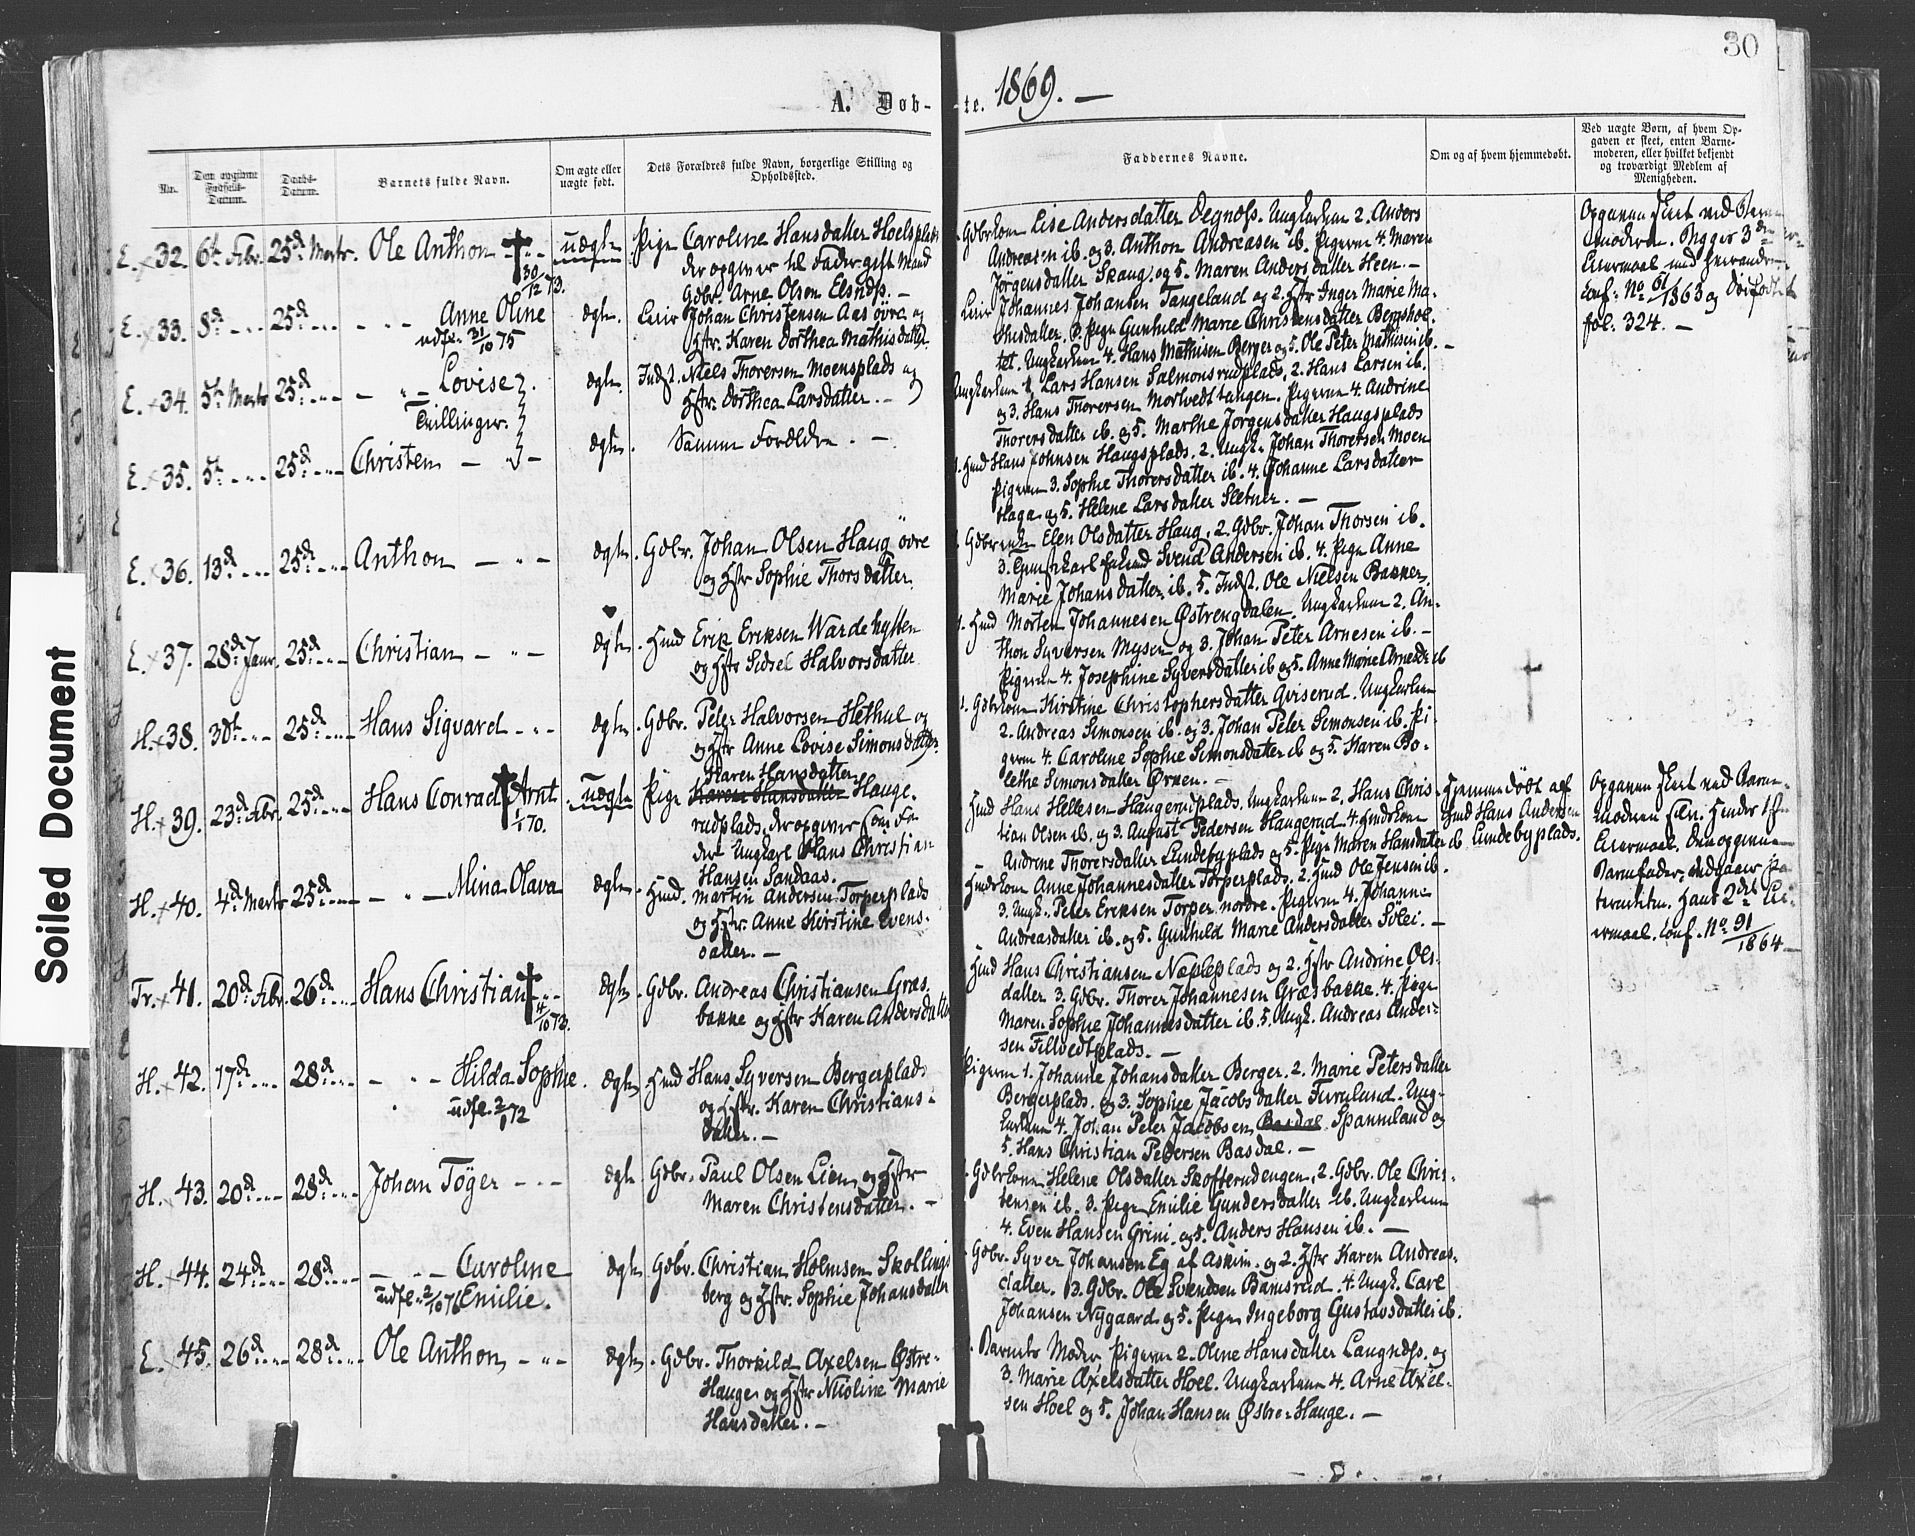 30
A. Døb-
te. 1869. —
No.
Den opgivne Fødsels-Datum.
Daabs-Datum.
Barnets fulde Navn.
Om ægte eller uægte født.
Dets Forældres fulde Navn, borgerlige Stilling og Opholdssted.
Faddernes Navne.
Om og af hvem hjemmedøbt.
Ved uægte Børn, af hvem Op-
gaven er skeet, enten Barne-
moderen, eller hvilket bekjendt
og troværdigt Medlem af
Menigheden.
E. 32. 6t Febr. 25d Marts. Ole Anthon 30/12 73. uægte Pige Caroline Hansdatter Hoelsplads
der opgiver til Fader gift Mand
Gdbr. Arne Olsen Elsnæss. —
Gdbrkone Lise Andersdatter Degnæss. Ungkarlene 2. Anders
Andreasen ib. og 3. Anthon Andreasen ib. Pigerne 4. Maren
Jørgensdatter Skaug, og 5. Maren Andersdatter Heen. —
conf: No 61/1863 og
fol. 324. —
E. 33. 8d 25d Anne Oline ægte. Leier Johan Christensen Aas øvre og
udfl. 31/10 75
Hstr. Karen Dorthea Mathisdatter.
Leier Johannes Johansen Tangeland og 2. Hstr Inger Marie Ma-
thisdatter. 3. Pige Gunhild Marie Christensdatter Bergshol-
tet. Ungkarlene 4. Hans Mathisen Berger og 5. Ole Peter Mathisen ib.
E. 34. 5t Marts 25d Lovise ægte Indst. Niels Thorersen Moensplads og
Tvillinger.
Hstr. Dorthea Larsdatter. —
Ungkarlene 1. Lars Hansen Salmonsrudplads, 2. Hans Larsen ib.
og 3. Hans Thorersen Mortvedttangen. Pigerne 4. Andrine
Thorersdatter ib. og 5. Marthe Jørgensdatter Haugsplads
E. 35. 5t 25d Christen ægte. Samme Forældre. —
Hmd Hans Johnsen Haugsplads. 2. Ungk. Johan Thorersen Moen
Pigerne 3. Sophie Thorersdatter ib. 4. Johanne Larsdatter
Haga og 5. Helene Larsdatter Sletner. —
E. 36. 13d 25d Anthon ægte. Gdbr. Johan Olsen Haug øvre
og Hstr Sophie Thorsdatter.
Gdbrenke Elen Olsdatter Haug, 2. Gdbr. Johan Thorsen ib.
Svend Andersen ib. 4. Pige Anne
Marie Johansdatter ib. 5. Indst. Ole Nielsen Bakker.
E. 37. 28d Janr. 25d Christian ægte. Hmd Erik Eriksen Wardehytten
og Hstr Sidsel Halvorsdatter
Hmd Morten Johannesen Østrengdalen. Ungkarlene 2. An-
thon Syversen Mysen og 3. Johan Peter Arnesen ib. —
Pigerne 4. Josephine Syversdatter ib og 5. Anne Marie Arnesdr ib
H. 38. 30t 25d Hans Sigvard ægte. Gdbr. Peter Halvorsen Hethul og
og Hstr Anne Lovise Simonsdatter.
Gdbrkone Kirstine Christophersdatter Gviserud. Ungkarlene
2. Andreas Simonsen ib. og 3. Johan Peter Simonsen ib. Pi-
gerne 4. Caroline Sophie Simonsdatter ib og 5. Karen Bo-
lethe Simonsdatter Ørnen. —
H. 39. 23d Febr. 25d Hans Conrad Arnt 1/1 70. uægte Pige Karen Hansdatter Hauge-
rudplads, der opgiver som Fa-
der Ungkarl Hans Christian
Hansen Sandaas.
Hmd Hans Hellesen Haugerudplads. Ungkarlene 2. Hans Chris-
tian Olsen ib. og 3. August Pedersen Haugerud. 4. Hmdskone
Andrine Thorersdatter Lundebyplads og 5. Pige Maren Hansdatter ib
Hjemmedøbt af
Hmd Hans Andersen
Lundebyplads.
Opgaven skeet ved Barne-
moderen selv. Hendes 1ste
Leiermaal. Den opgivne
Barnefader vedgaaer Pa-
terniteten. Hans 2det Lei-
ermaal. Conf. No. 91/1864 —
H. 40. 4d Marts 25d Mina Olava ægte. Hmd. Martin Andersen Torperplads
og Hstr. Anne Kirstine Evens-
datter. —
Hmdskone Anne Johannesdatter Torperplads. 2. Hmd Ole Jensen ib.
3. Ungk. Peter Eriksen Torper nordre. Pigerne 4. Johanne
Andreasdatter ib. og 5. Gunhild Marie Andersdatter Sølei. —
Tr. 41. 20d Febr 26d Hans Christian 4/10 73. ægte. Gdbr. Andreas Christiansen Græs-
bakke og Hstr Karen Andersdatter
Hmd Hans Christiansen Næpleplads og 2. Hstr Andrine Ols-
datter. 3. Gdbr. Thorer Johannesen Græsbakke. 4. Pige
Maren Sophie Johannesdatter ib. 5. Ungk. Andreas Ander-
sen Fillvedtplads. —
H. 42. 17d 28d Hilda Sophie. ægte Hmd Hans Syversen Bergerplads
udfl. 2/1 72
og Hstr. Karen Christians-
datter. —
Pigerne 1. Johanne Johansdatter Berger. 2. Marie Petersdatter
Bergerplads. og 3. Sophie Jacobsdatter Furulund. Ung-
karlene 4. Johan Peter Jacobsen Basdal Spannland og
5. Hans Christian Pedersen Basdal. —
H. 43. 20d 28d Johan Töger ægte Gdbr. Paul Olsen Lien og Hstr
Maren Christensdatter. —
Gdbrkone Helene Olsdatter Skofterudengen, 2. Gdbr. Ole Chris-
tensen ib. 3. Pige Emilie Gundersdatter ib. Ungkarlene
4. Even Hansen Grini. og 5. Anders Hansen ib. —
H. 44. 24d 28d Caroline ægte Gdbr. Christian Holmsen Skollings-
udfl. 2/10 76 Emilie.
berg og Hstr. Sophie Johansdatter
Gdbr. Syver Johansen Eg af Askim. og 2. Hstr Karen Andreas-
datter. 3. Gdbr. Ole Svendsen Bamsrud. 4. Ungk. Carl
Johansen Nygaard og 5. Pige Ingeborg Gustavsdatter ib.
E. 45. 26d 28d Ole Anthon ægte. Gdbr. Thorkild Axelsen Østre-
Hauge og Hstr Nicoline Marie
Hansdatter. —
Barnets Moder. Pigerne 2. Oline Hansdatter Langnæs. og
3. Marie Axelsdatter Hoel. Ungkarlene 4. Arne Axel-
sen Hoel og 5. Johan Hansen Østre-Hauge. —
Soiled Document